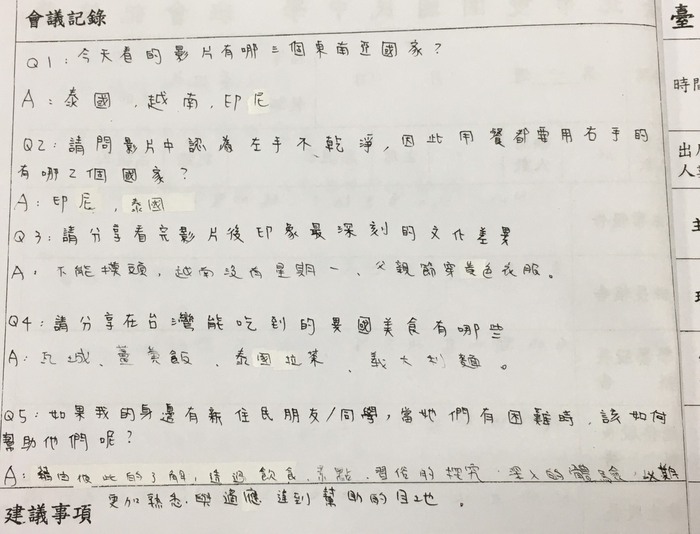 會議記錄
臺
Q1：今天看的影片有哪三個東南亞國家？
A：泰國、越南、印尼
時間
Q2：請問影片中認為左手不乾淨，因此用餐都要用右手的
有哪2個國家？
A：印尼、泰國
Q3：請分享看完影片後印象最深刻的文化差異
A：不能摸頭，越南沒有星期一、父親節穿黃色衣服。
Q4：請分享在台灣能吃到的異國美食有哪些
A：瓦城、薑黃飯、泰國拉茶、義大利麵。
Q5：如果我的身邊有新住民朋友/同學，當她們有困難時，該如何
幫助他們呢？
A：彼此的了解，透過飲食、習俗的探究，深入的體會，
更加熟悉與適應達到幫助的目地。
建議事項